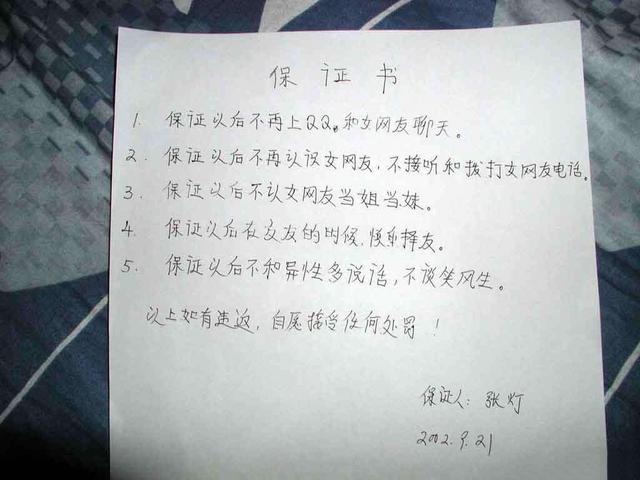 保证书
1. 保证以后不再上QQ,和女网友聊天。
2. 保证以后不再认识女网友,不接听和拨打女网友电话。
3. 保证以后不认女网友当姐当妹。
4. 保证以后在交友的时候,慎重择友。
5. 保证以后不和异性多说话,不谈笑风生。
以上如有违返,自愿接受任何处罚!
保证人:张灯
2002.9.21